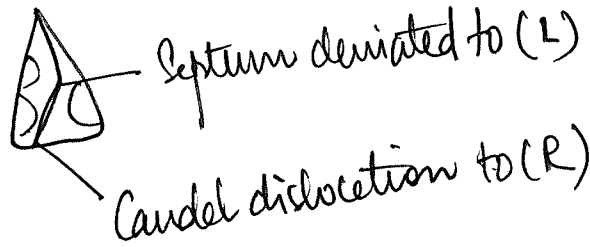 Septum deviated to (L)
Caudal dislocation to (R)